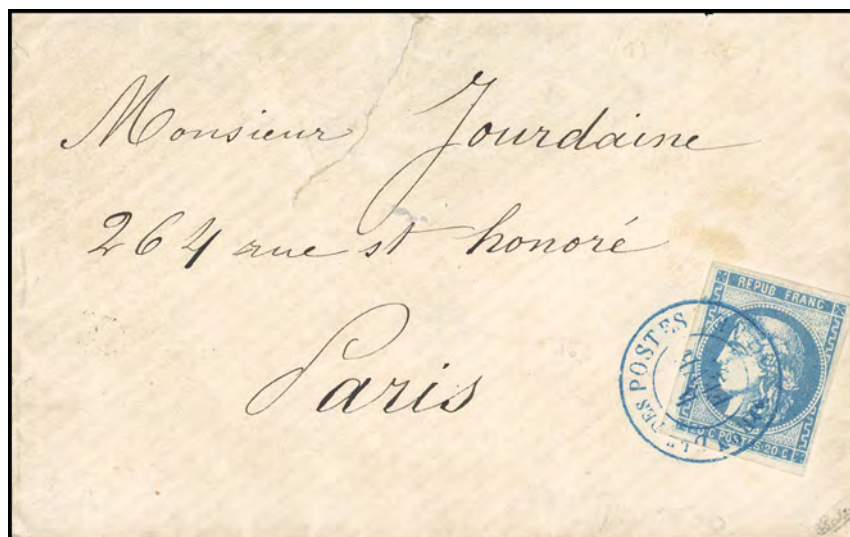 Monsieur Jourdaine
264 rue st honoré
Paris
REPUB FRANC
DES POSTES
20 C POSTES 20 C